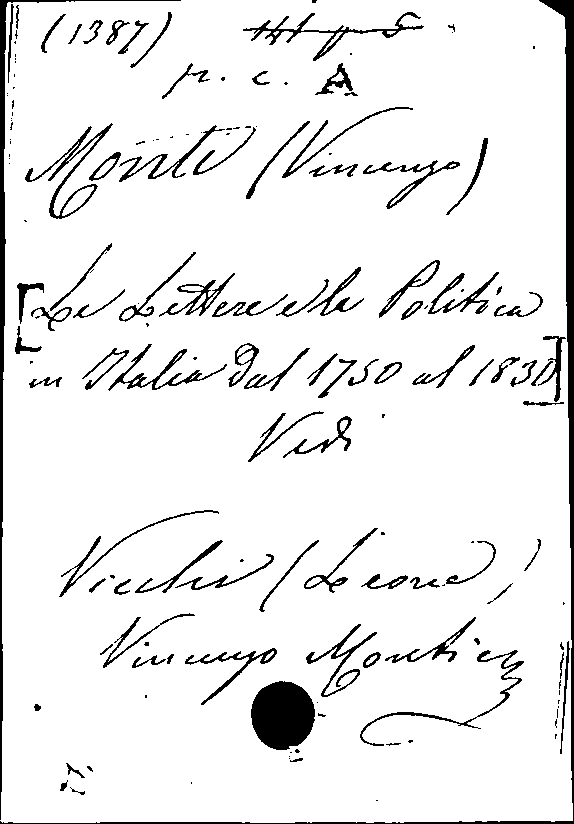 (1387)
p. c. A
Monti (Vincenzo)
[Le Lettere e la Politica
in Italia dal 1750 al 1830]
Vedi
Vicchi (Leone)
Vincenzo Monti